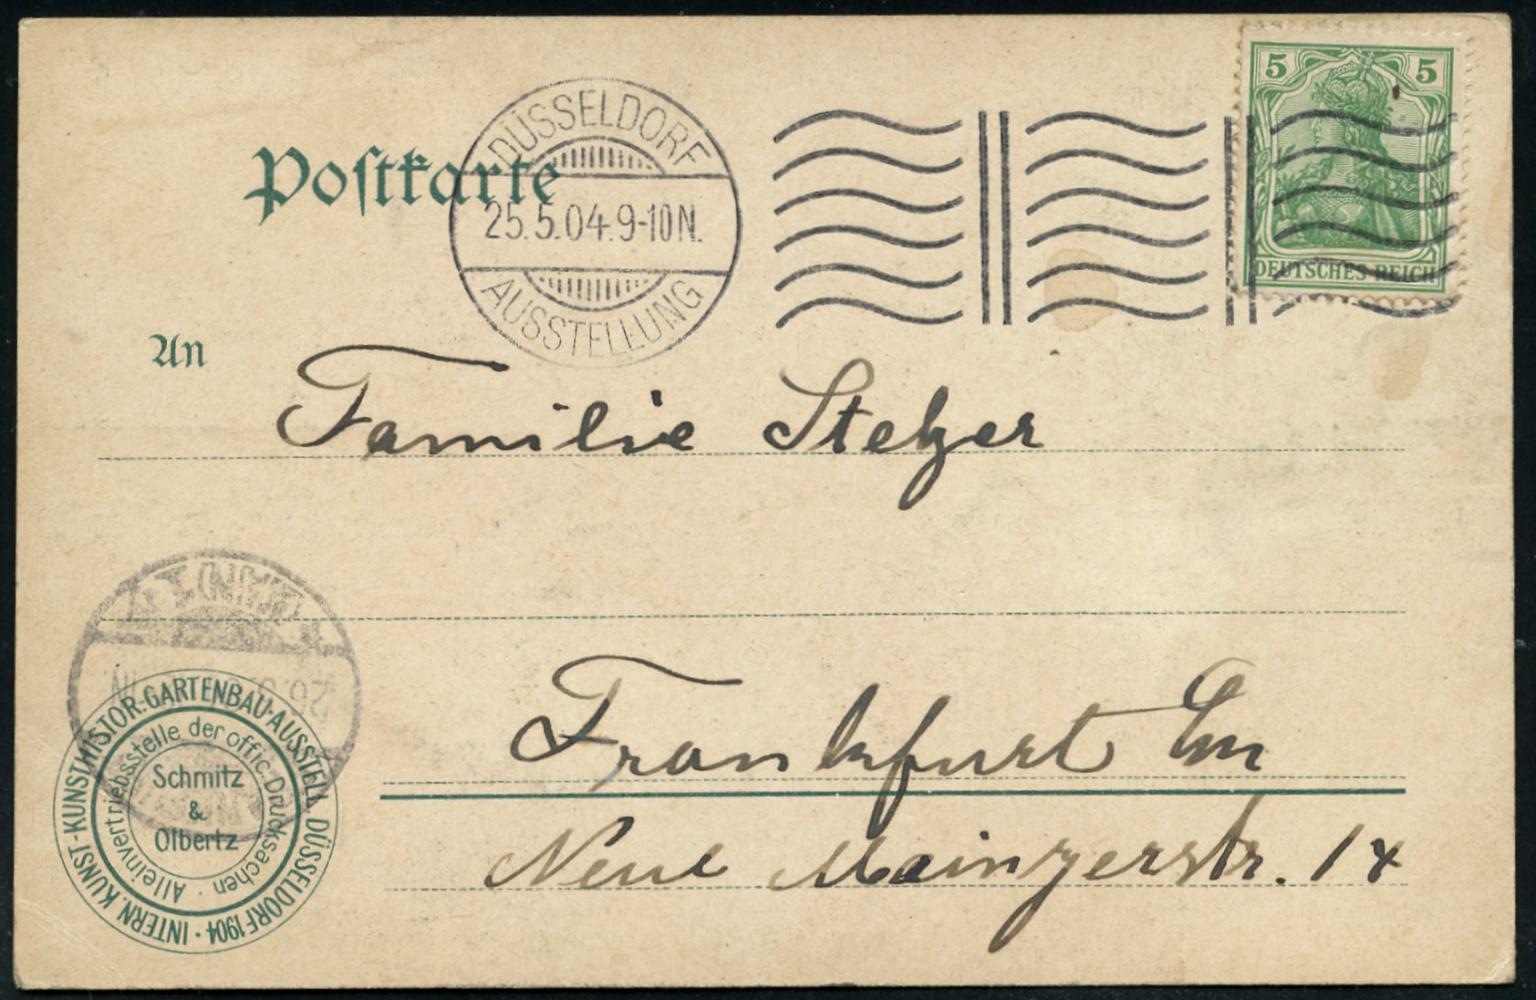 5 5
DEUTSCHES REICH
Postkarte
DÜSSELDORF
25.5.04.9-10N.
AUSSTELLUNG
An
Familie Stelzer
Frankfurt
Neue Mainzerstr. 14
INTERN KUNST-KUNSTHISTOR-GARTENBAU-AUSSTELL. DÜSSELDORF 1904
Alleinvertriebsstelle der offic. Drucksachen
Schmitz
&
Olbertz